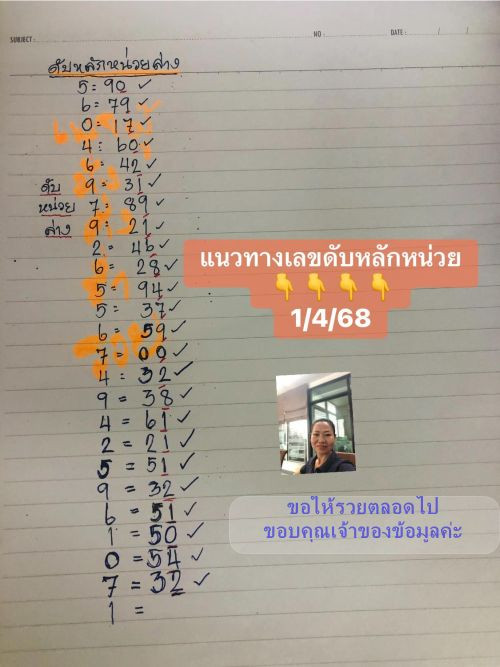 SUBJECT :
NO :
DATE : / /
ดับหลักหน่วยล่าง
5 = 90 ✓
6 = 79 ✓
0 = 17 ✓
4 = 60 ✓
6 = 42 ✓
9 = 31 ✓
7 = 89 ✓
9 = 21 ✓
2 = 46 ✓
6 = 28 ✓
5 = 94 ✓
5 = 37 ✓
6 = 59 ✓
7 = 00 ✓
4 = 32 ✓
9 = 38 ✓
4 = 61 ✓
2 = 21 ✓
5 = 51 ✓
9 = 32 ✓
6 = 51 ✓
1 = 50 ✓
0 = 54 ✓
7 = 32 ✓
1 =
ดับ
หน่วย
ล่าง
แนวทางเลขดับหลักหน่วย
👇 👇 👇 👇
1/4/68
ขอให้รวยตลอดไป
ขอบคุณเจ้าของข้อมูลค่ะ